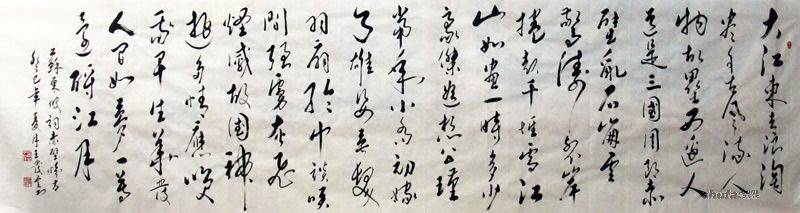 大江東去浪淘
盡千古風流人
物故壘西邊人
道是三國周郎赤
壁亂石崩雲
驚濤裂岸
捲起千堆雪江
山如畫一時多少
豪傑遙想公瑾
當年小喬初嫁
了雄姿英發
羽扇綸巾談笑
間強虜灰飛
煙滅故國神
遊多情應笑
我早生華發
人間如夢一尊
還酹江月
蘇東坡詞赤壁懷古
癸巳年夏月王